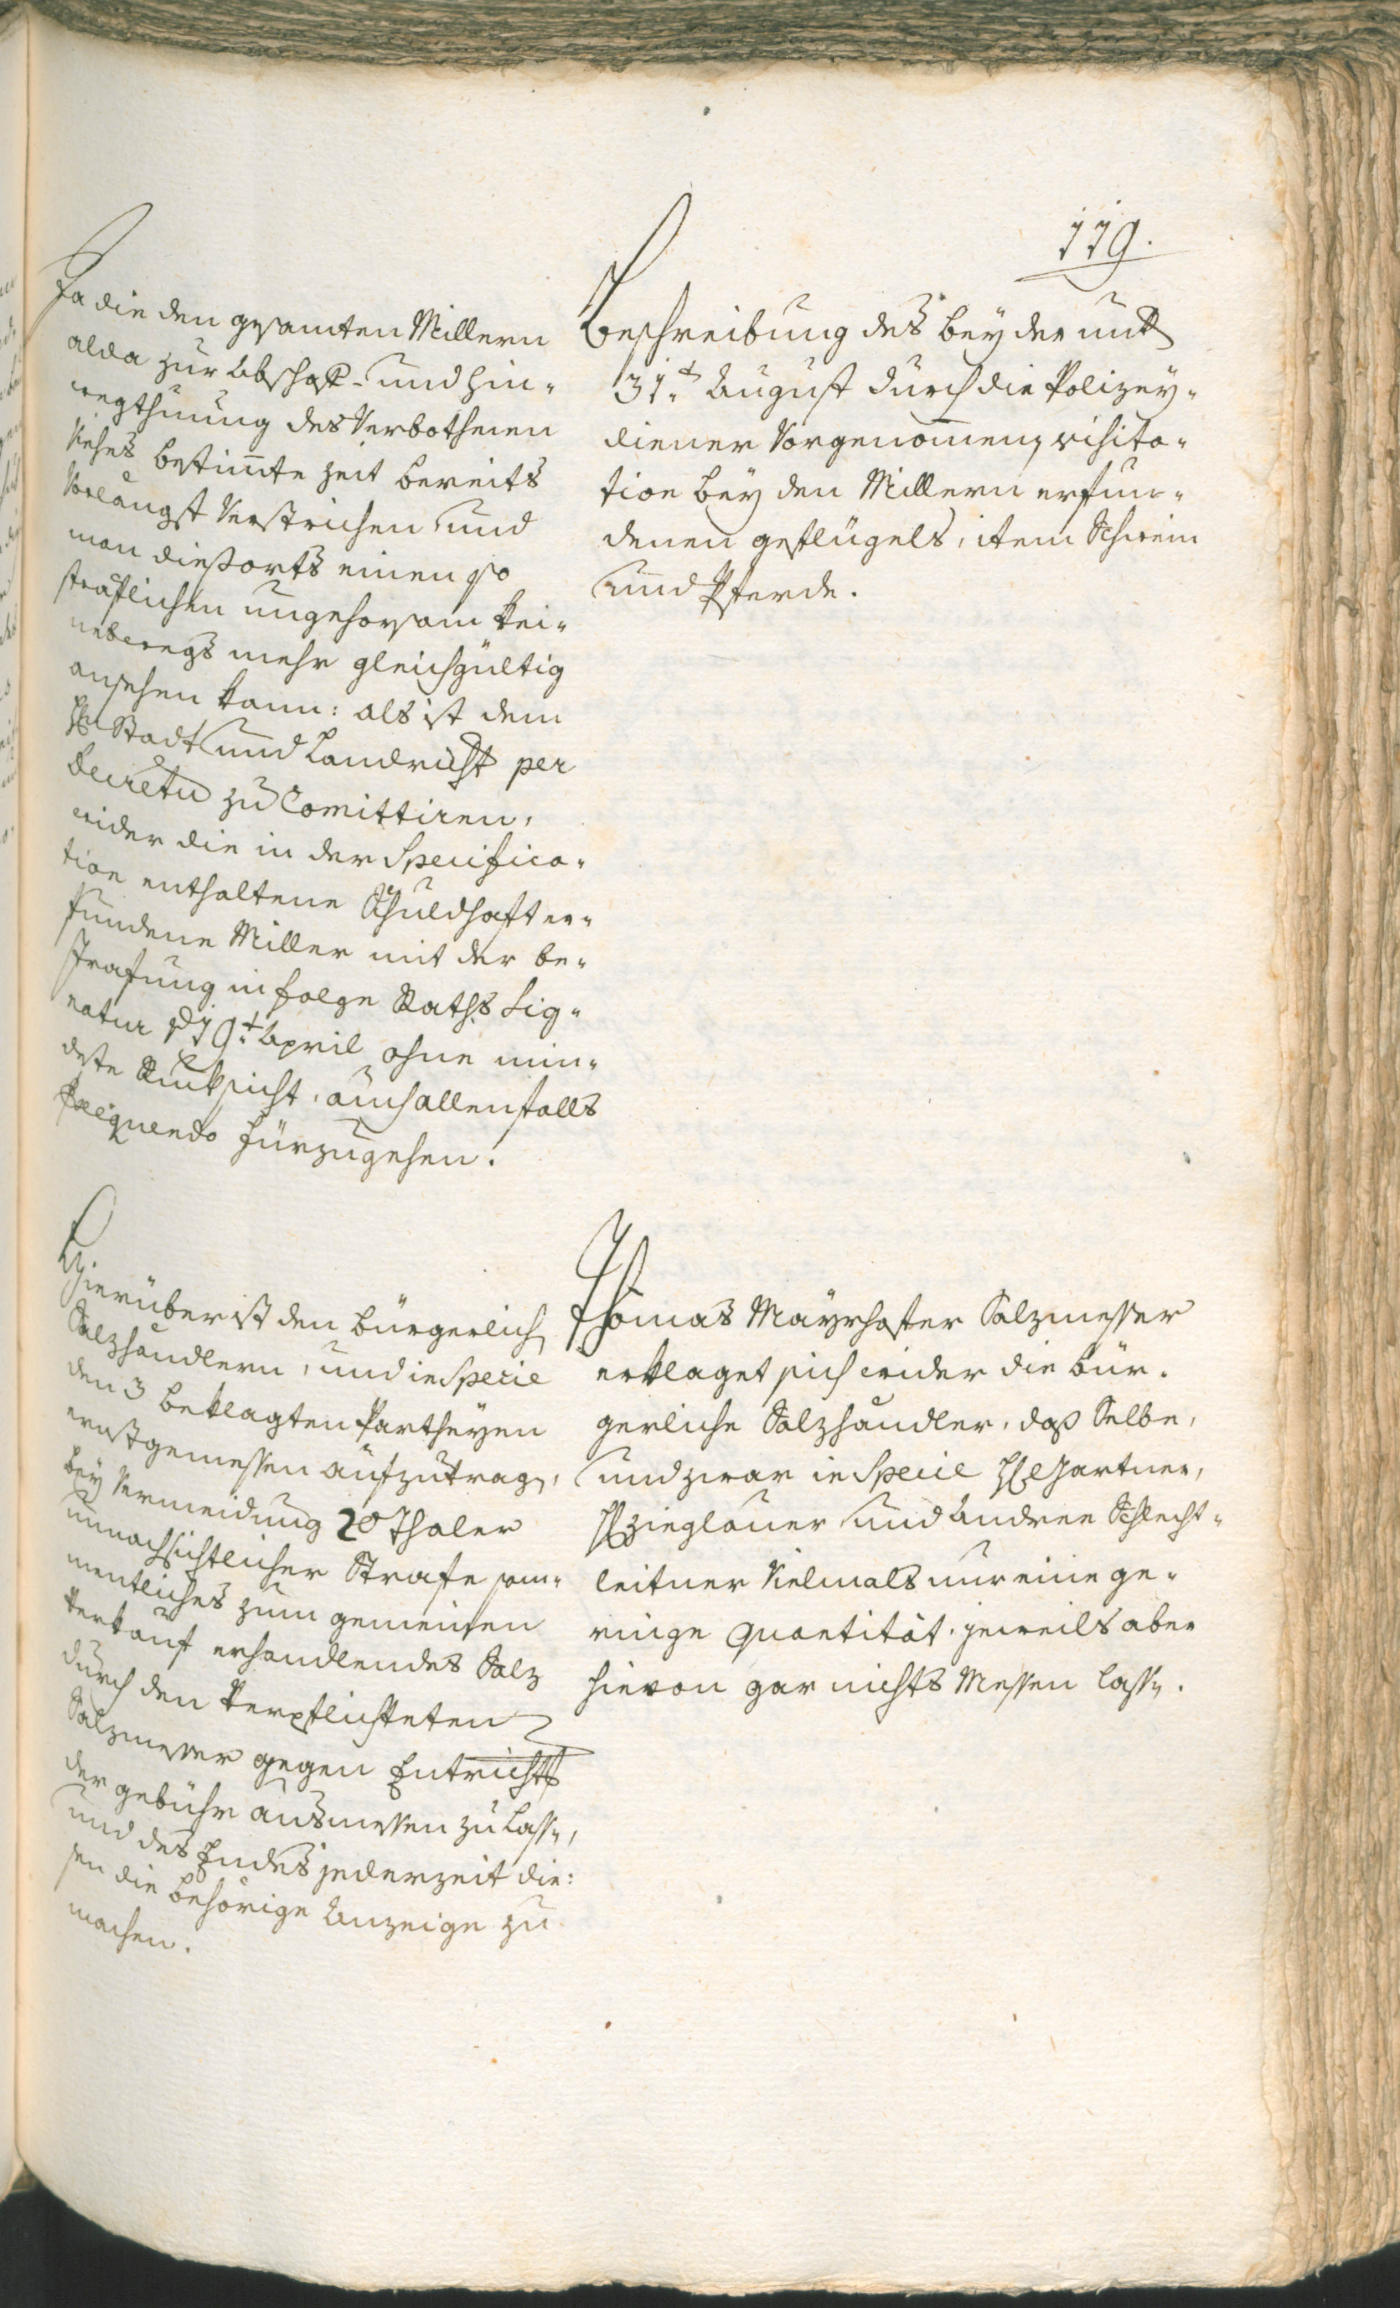 119.
Da die den gesamten Millern
alda zur Abschaff- und Hin-
wegthuung des Verbothenen
Vieches bestimte Zeit bereits
Vorlängst Verstrichen und
man diessorts einen so
sträflichen ungehorsam kei-
neswegs mehr gleichgültig
ansehen kann: als ist dem
H. Stadt und Landricht per
Decretu zu Comittiren,
wider die in der Specifica-
tion enthaltene Schuldhaft er-
fundene Miller mit der be-
strafung in folge Raths Sig-
natur dd 19t April ohne min-
deste Rucksicht, auch allenfalls
Exequendo fürzugehen.
Beschreibung des bey der unt
31t August durch die Polizey-
diener Vorgenomenen visita-
tion bey den Millern erfun-
denen geflügels, item Schwein
und Pferde.
Hierüber ist den bürgerlich
Salzhändlern, und in Specie
den 3 beklagten Partheyen
ernstgemessen aufzutragen,
bey Vermeidung 20 Thaler
unnachsichtlicher Strafe sam-
mentliches zum gemeinen
Verkauf erhandlendes Salz
durch den Verpflichteten
Salzmesser gegen Entricht
der gebühr ausmessen zu lassen,
und des Endes jederzeit die-
sen die behörige Anzeige zu
machen.
Thomas Mayrhofer Salzmesser
erklaget sich wider die bür-
gerliche Salzhändler, daß Selbe,
und zwar in Specie H. Gartner,
H. Zieglauer und Andree Schlecht-
leitner Vielmals nur eine ge-
ringe Quantität, jeweils aber
hievon gar nichts Messen lassen.